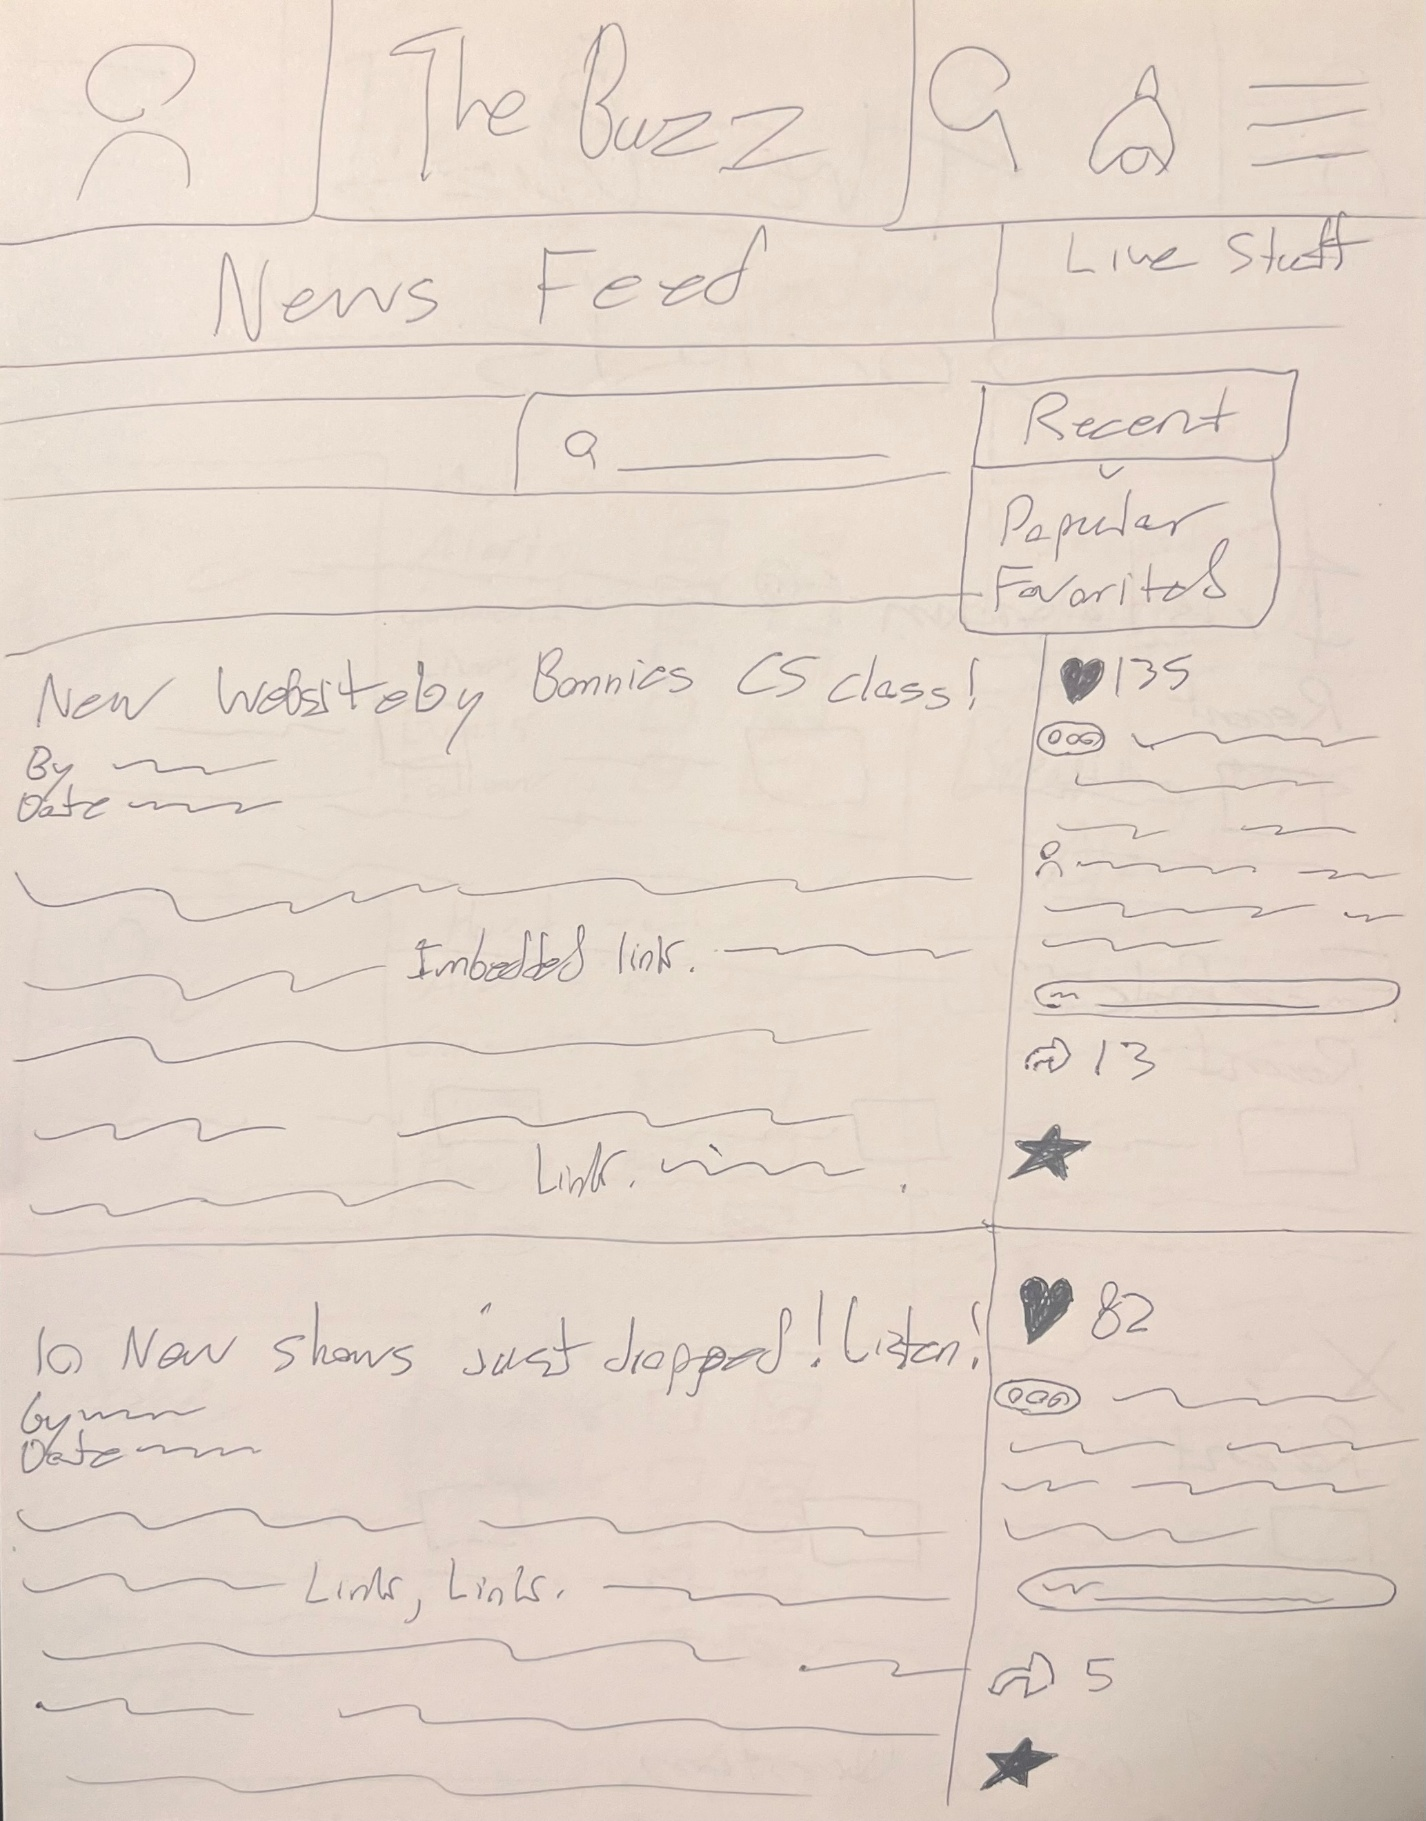 The Buzz
News Feed
Live Stuff
Recent
Popular
Favorited
New Website by Bonnies CS class!
By
Date
Imbedded link.
Link.
135
13
10 New shows just dropped! Listen!
By
Date
Links, Links.
82
5